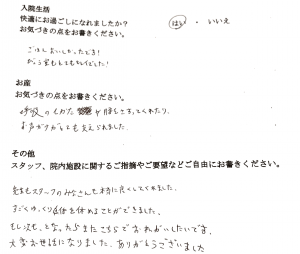 入院生活
快適にお過ごしになれましたか？ はい ・ いいえ
お気づきの点をお書きください。
ごはんおいしかったです！
お産
お気づきの点をお書きください。
呼吸のしかた や 腰をさすってくれたり、
その他
スタッフ、院内施設に関するご指摘やご要望などご自由にお書きください。
先生もスタッフのみなさんも本当に良くしてくれました。
すごくゆっくり体を休めることができました。
もし次も、となったらまたこちらでおねがいしたいです。
大変お世話になりました。ありがとうございました